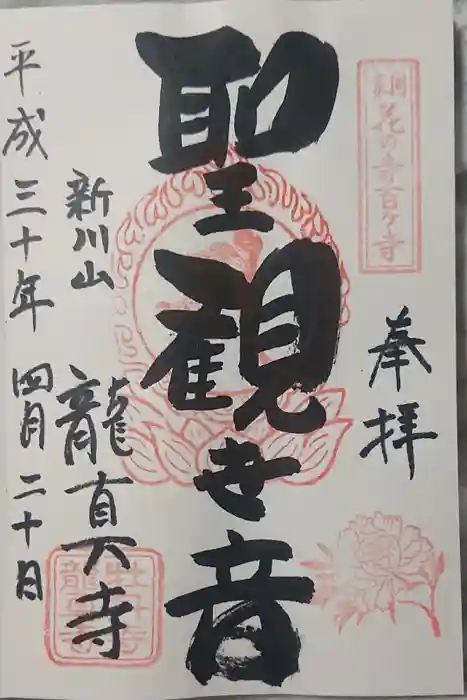 関東花の寺百ヶ寺
奉拝
聖観世音
新川山 龍真寺
平成三十年 四月二十日